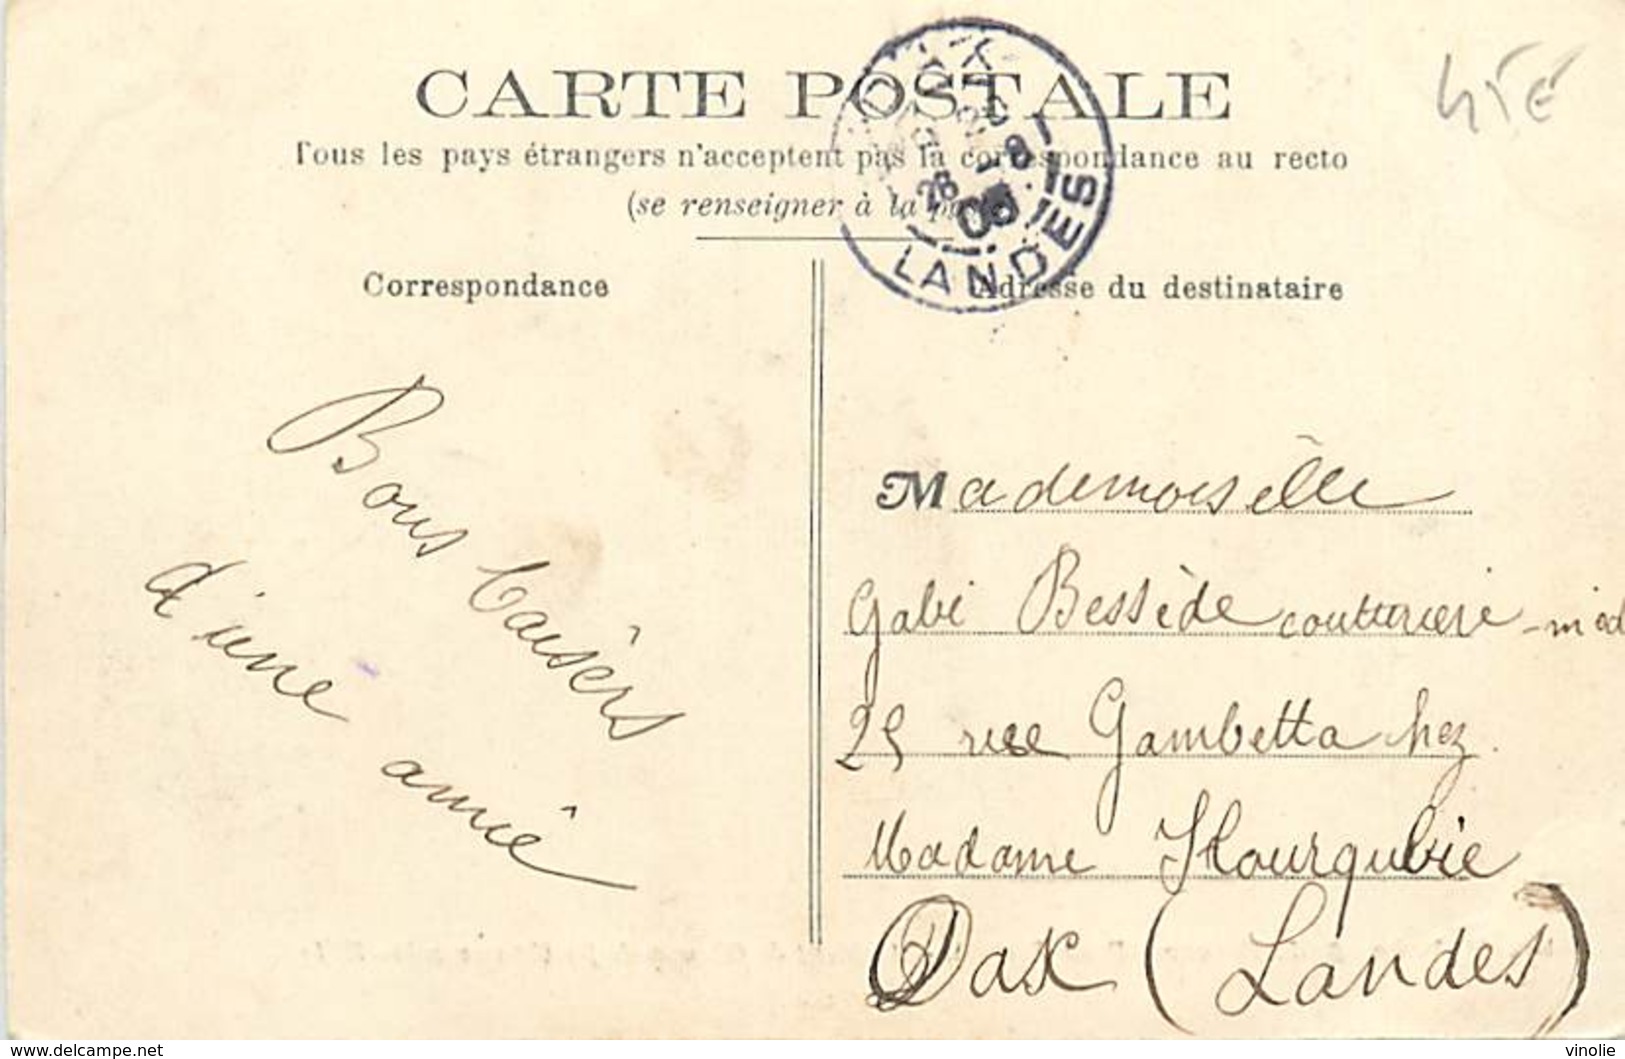 CARTE POSTALE
Tous les pays étrangers n'acceptent pas la correspondance au recto
(se renseigner à la
LANDES
Correspondance
Adresse du destinataire
45€
Bons baisèrs
d'une amiê
Mademoisêlle
Gabi Bessède couturieri - mod
25 rue Gambetta chez
Madame Hourqubie
Dax (Landes)
www.delcampe.net
vinolie